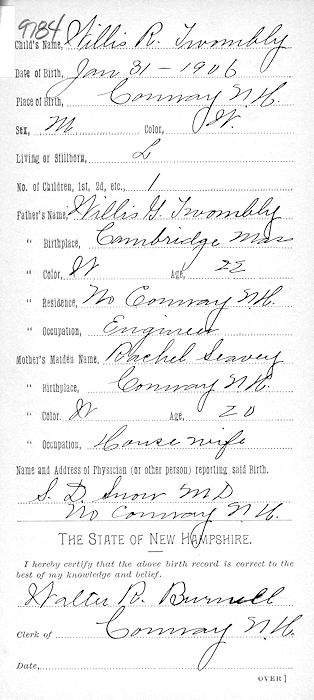 9784
Child's Name, Willis R. Twombly
Date of Birth, Jan 31 - 1906
Place of Birth, Conway N.H.
Sex, M Color, W.
Living or Stillborn, L
No. of Children, 1st, 2d, etc., 1
Father's Name, Willis G. Twombly
" Birthplace, Cambridge Mas
" Color, W Age, 22
" Residence, No Conway N.H.
" Occupation, Engineer
Mother's Maiden Name, Rachel Seavey
" Birthplace, Conway N.H.
" Color, W Age, 20
" Occupation, House wife
Name and Address of Physician (or other person) reporting said Birth.
S. D. Snow M D
No Conway N. H.
THE STATE OF NEW HAMPSHIRE.
I hereby certify that the above birth record is correct to the
best of my knowledge and belief.
Walter R. Burnell
Clerk of Conway N.H.
Date,
OVER]